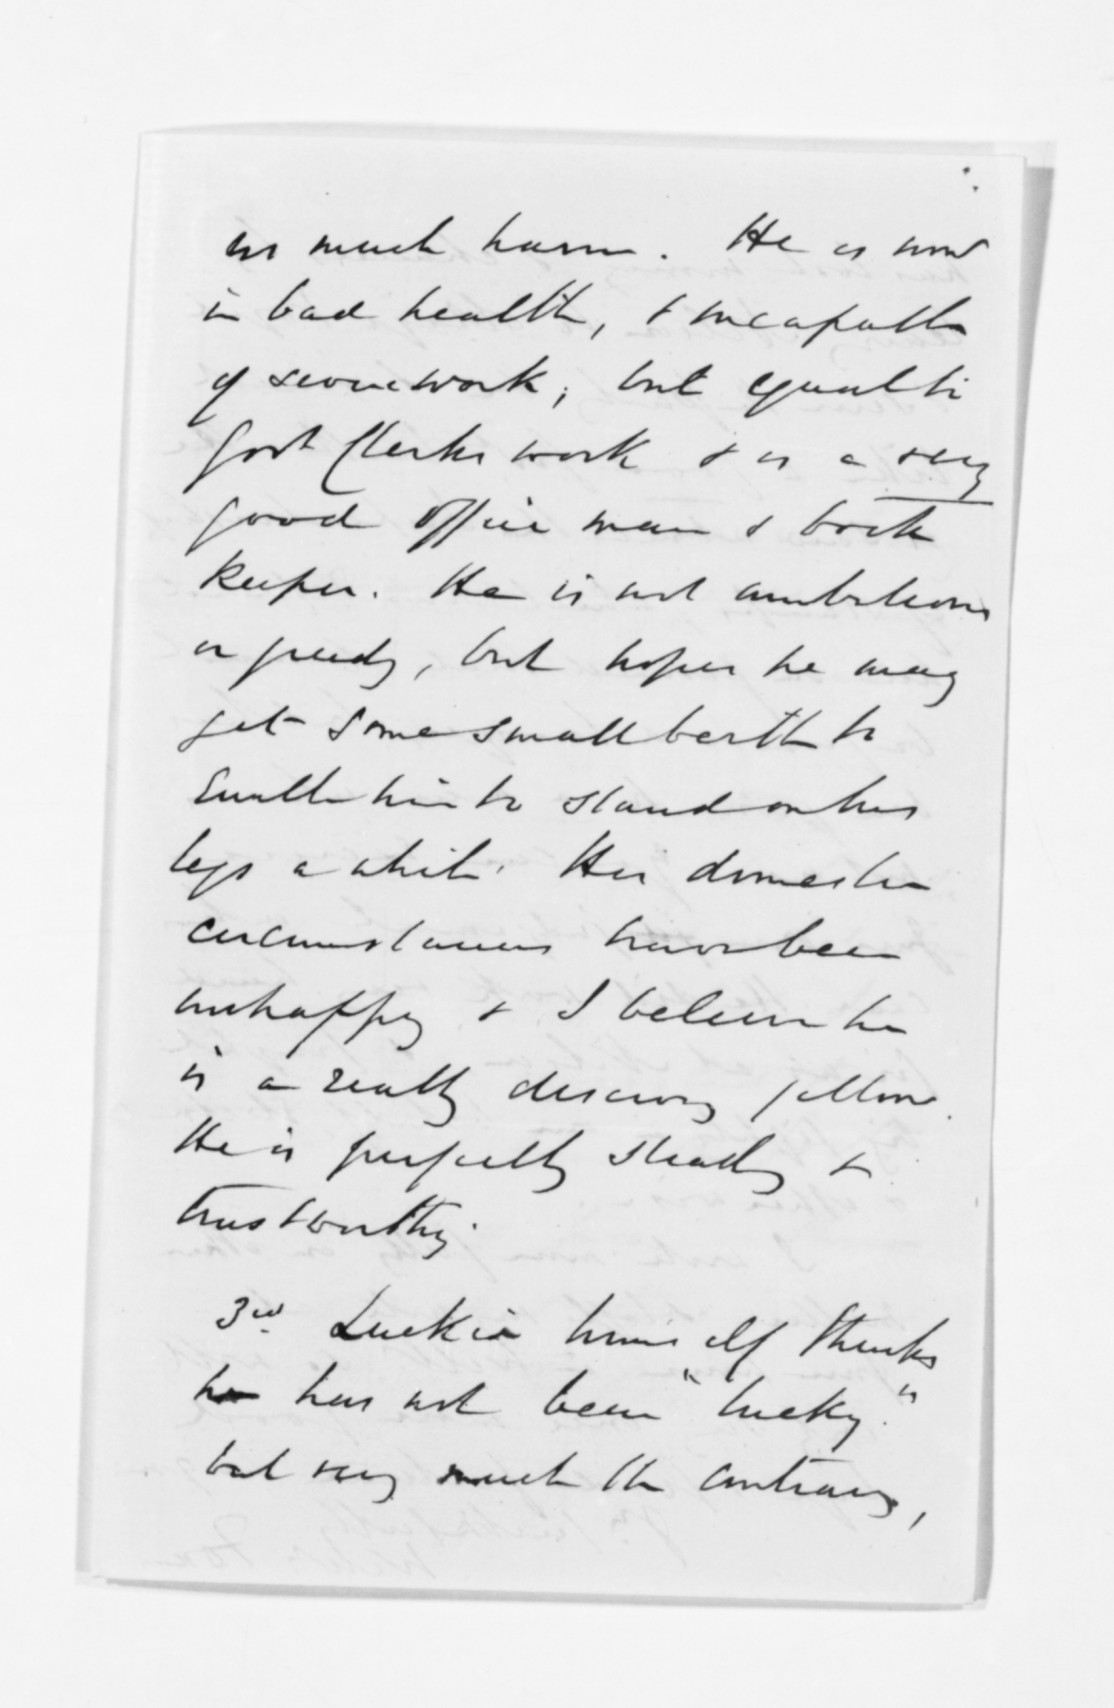 us much harm. He is now
in bad health, & incapable
of severe work; but equal to
Govt Clerks work & is a very
good office man & book
keeper. He is not ambitious
or greedy, but hopes he may
get some small berth to
Enable him to stand on his
legs a while. His domestic
circumstances have been
unhappy & I believe he
is a really deserving fellow.
He is perfectly steady &
trustworthy.
3rd Luckie himself thinks
he has not been "lucky."
but very much the contrary,